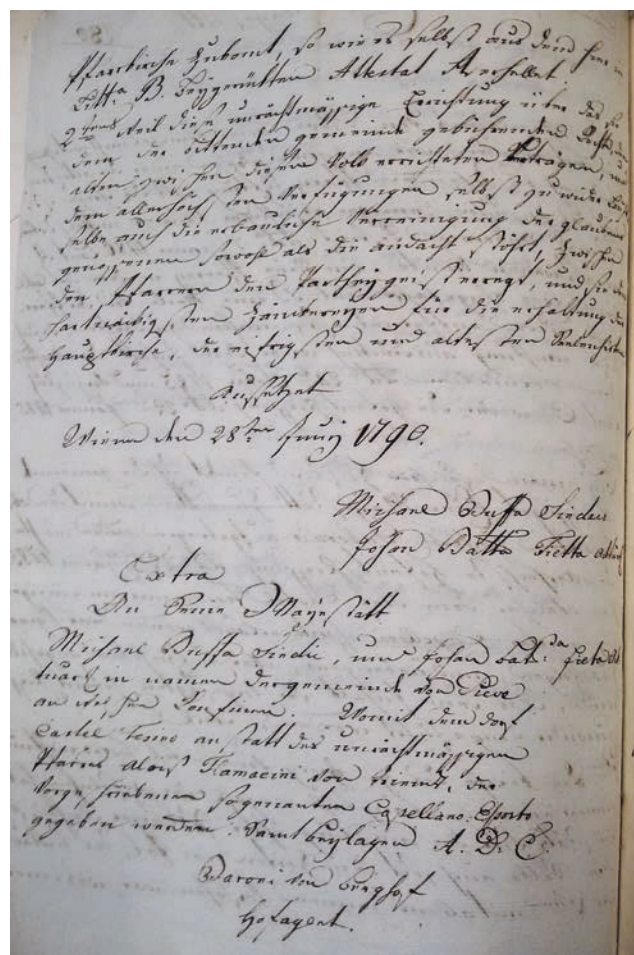 Pfarrkirche zukomt, so wie es selbst aus dem hier in
Litt.a B. beygerückten Attestat A erhellet.
2tens Weil diese unrächtmässige Errichtung über das
dem der bittenden gemeinde gebührenden Recht,
alten zwischen diesem Volk errichteten Verträgen, und
dem allerhöchsten Verfügungen selbst zu wider
selbe auch die erbauliche Vereinigung der glaubens
genossenen sowohl als die andacht stöhrt, zwischen
den Pfarrern den Partheygeist erregt, und sie den
hartnäckigsten Zänkereyen für die erhaltung der
Hauptkirche, der eifrigsten und altesten Seelenhirten
Aussetzet
Wienn den 28ten Junÿ 1790.
Michael Buffa Sindic
Johan Batta Fietta
Extra
An Seine Mayestätt
Michael Buffa Sindic, und Johan bat:ta Fieta
tuari in namen der gemeinde von Pieve
an wälschen Confinen. Womit dem dorf
Castel Tesino an statt des unrächtmässigen
Pfarrs Aloiß Tramacini von Trient, der
Vorgeschriebenen sogenanten Capellano Esposto
gegeben werden. Samt beylagen A. B. C.
Baroni von Berghof
Hofagent.